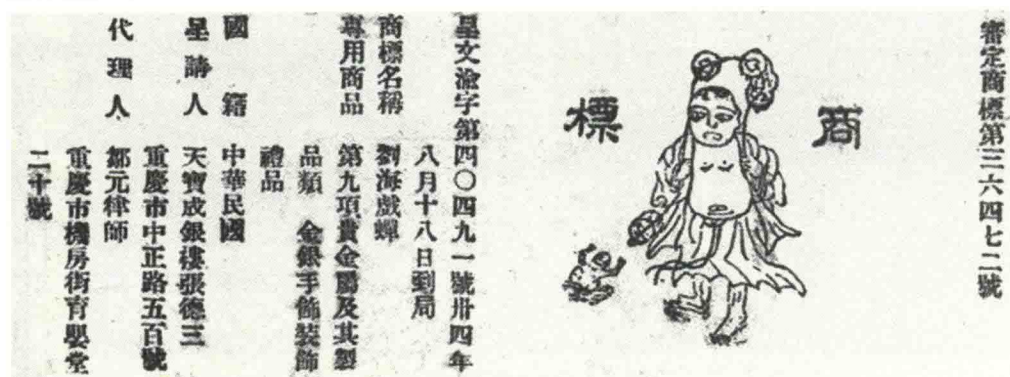 審定商標第三六四七二號
商標
呈文渝字第四〇四九一號卅四年
八月十八日到局
商標名稱 劉海戲蟬
專用商品 第九項貴金屬及其製
品類 金銀手飾裝飾
禮品
國籍 中華民國
呈請人 天寶成銀樓張德三
重慶市中正路五百號
代理人 鄒元律師
重慶市機房街育嬰堂
二十號